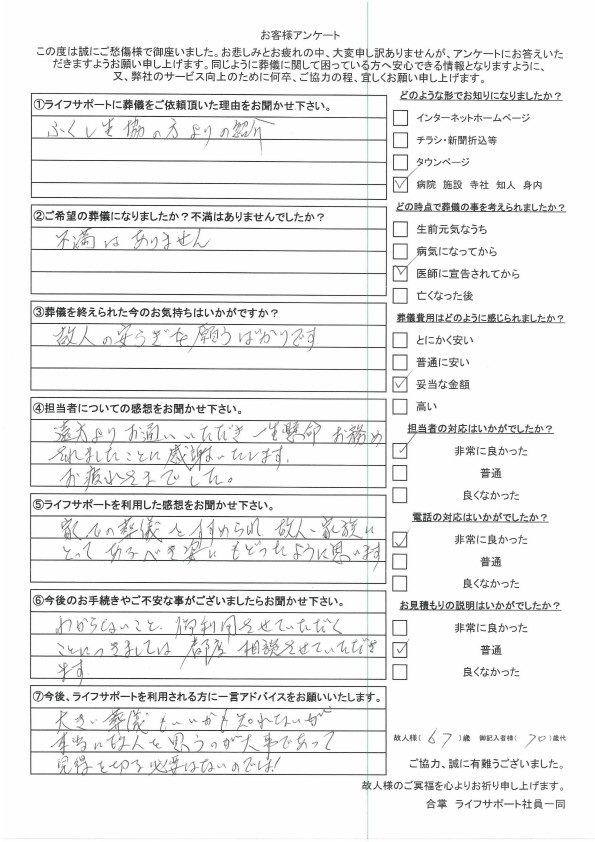 お客様アンケート
この度は誠にご愁傷様で御座いました。お悲しみとお疲れの中、大変申し訳ありませんが、アンケートにお答えいた
だきますようお願い申し上げます。同じように葬儀に関して困っている方へ安心できる情報となりますように、
又、弊社のサービス向上のために何卒、ご協力の程、宜しくお願い申し上げます。
①ライフサポートに葬儀をご依頼頂いた理由をお聞かせ下さい。
ふくし生協の方よりの紹介
②ご希望の葬儀になりましたか?不満はありませんでしたか?
不満はありません
③葬儀を終えられた今のお気持ちはいかがですか?
故人の安らぎを願うばかりです
④担当者についての感想をお聞かせ下さい。
遠方よりお通いいただき一生懸命お務め
されましたことに感謝いたします。
お疲れさまでした。
⑤ライフサポートを利用した感想をお聞かせ下さい。
家での葬儀をすすめられ故人、家族に
とってあるべき姿にもどったように思います
⑥今後のお手続きやご不安な事がございましたらお聞かせ下さい。
わからないこと、御利用させていただく
ことにつきましては都度相談させていただき
ます。
⑦今後、ライフサポートを利用される方に一言アドバイスをお願いいたします。
大きい葬儀もいいかも知れないが
本当に故人を思うのが大事であって
見得を切る必要はないのでは!
どのような形でお知りになりましたか?
インターネットホームページ
チラシ・新聞折込等
タウンページ
病院 施設 寺社 知人 身内
どの時点で葬儀の事を考えられましたか?
生前元気なうち
病気になってから
医師に宣告されてから
亡くなった後
葬儀費用はどのように感じられましたか?
とにかく安い
普通に安い
妥当な金額
高い
担当者の対応はいかがでしたか?
非常に良かった
普通
良くなかった
電話の対応はいかがでしたか?
非常に良かった
普通
良くなかった
お見積もりの説明はいかがでしたか?
非常に良かった
普通
良くなかった
故人様(67)歳 御記入者様(70)歳代
ご協力、誠に有難うございました。
故人様のご冥福を心よりお祈り申し上げます。
合掌 ライフサポート社員一同